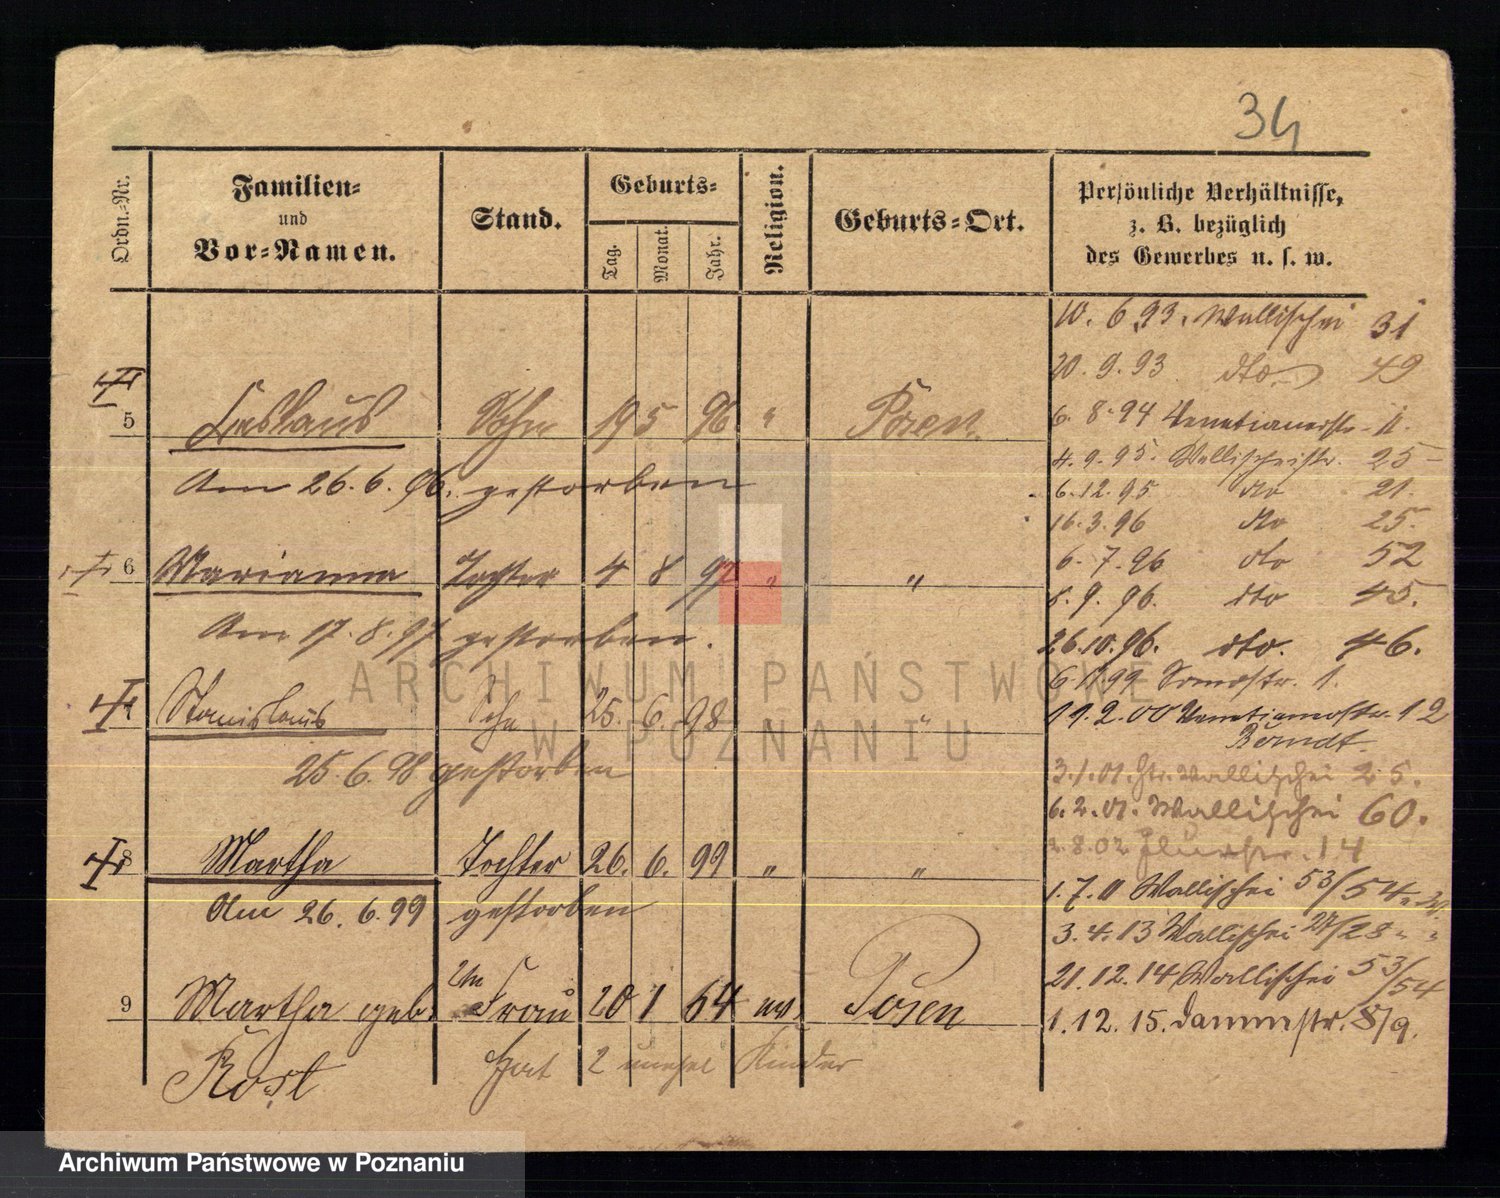 34
Ordn.-Nr.
Familien-
und
Vor-Namen.
Stand.
Geburts-
Tag.
Monat.
Jahr.
Religion.
Geburts-Ort.
Persönliche Verhältnisse,
z. B. bezüglich
des Gewerbes u. s. w.
5 Ladislaus Sohn 19 5 96 " Posen
Am 26.6.96. gestorben
6 Marianna Tochter 4 8 97 " "
Am 17.8.97 gestorben.
Stanislaus Sohn 25. 6. 98 " "
25.6.98 gestorben
8 Martha Tochter 26. 6. 99 " "
Am 26.6.99 gestorben
9 Martha geb. Frau 20 1 64 ev. Posen
Rost Hat 2 unehel Kinder
10. 6. 93. Wallischei 31
20. 9. 93 dto 49
6. 8. 94 Venetianerstr. 11.
4. 9. 95. Wallischeistr. 25
6. 12. 95 dto 21.
16. 3. 96 dto 25.
6. 7. 96 dto 52
8. 9. 96. dto 45.
26.10.96. dto. 46.
6 1 99 1.
19. 2. 00 Venetianerstr. 12
3. 1. 01. Gr. Wallischei 25.
6. 2. 01. Wallischei 60.
8. 02 Flurstr. 14
1. 7. 11 Wallischei 53/54
3. 4. 13 Wallischei 27/28 " "
21. 12. 14 Wallischei 53/54
1. 12. 15. Dammstr. 8/9.
ARCHIWUM PAŃSTWOWE
W POZNANIU
Archiwum Państwowe w Poznaniu